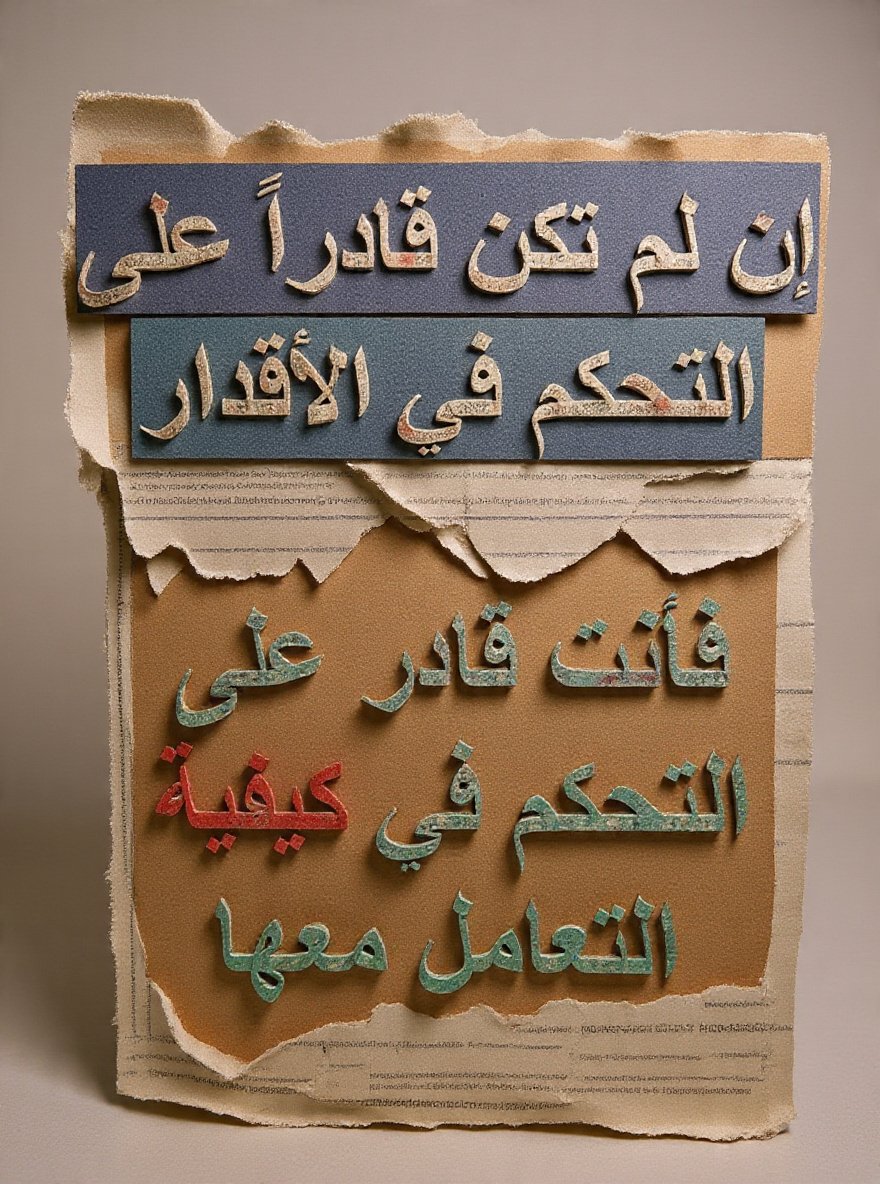 إن لم تكن قادراً على
التحكم في الأقدار
فأنت قادر على
التحكم في كيفية
التعامل معها